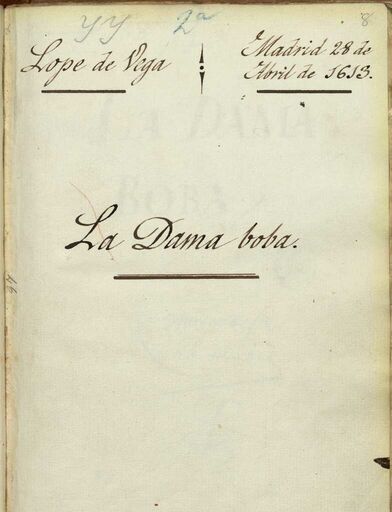 yy 2ª 8
Lope de Vega
Madrid 28 de
Abril de 1613.
La Dama boba.